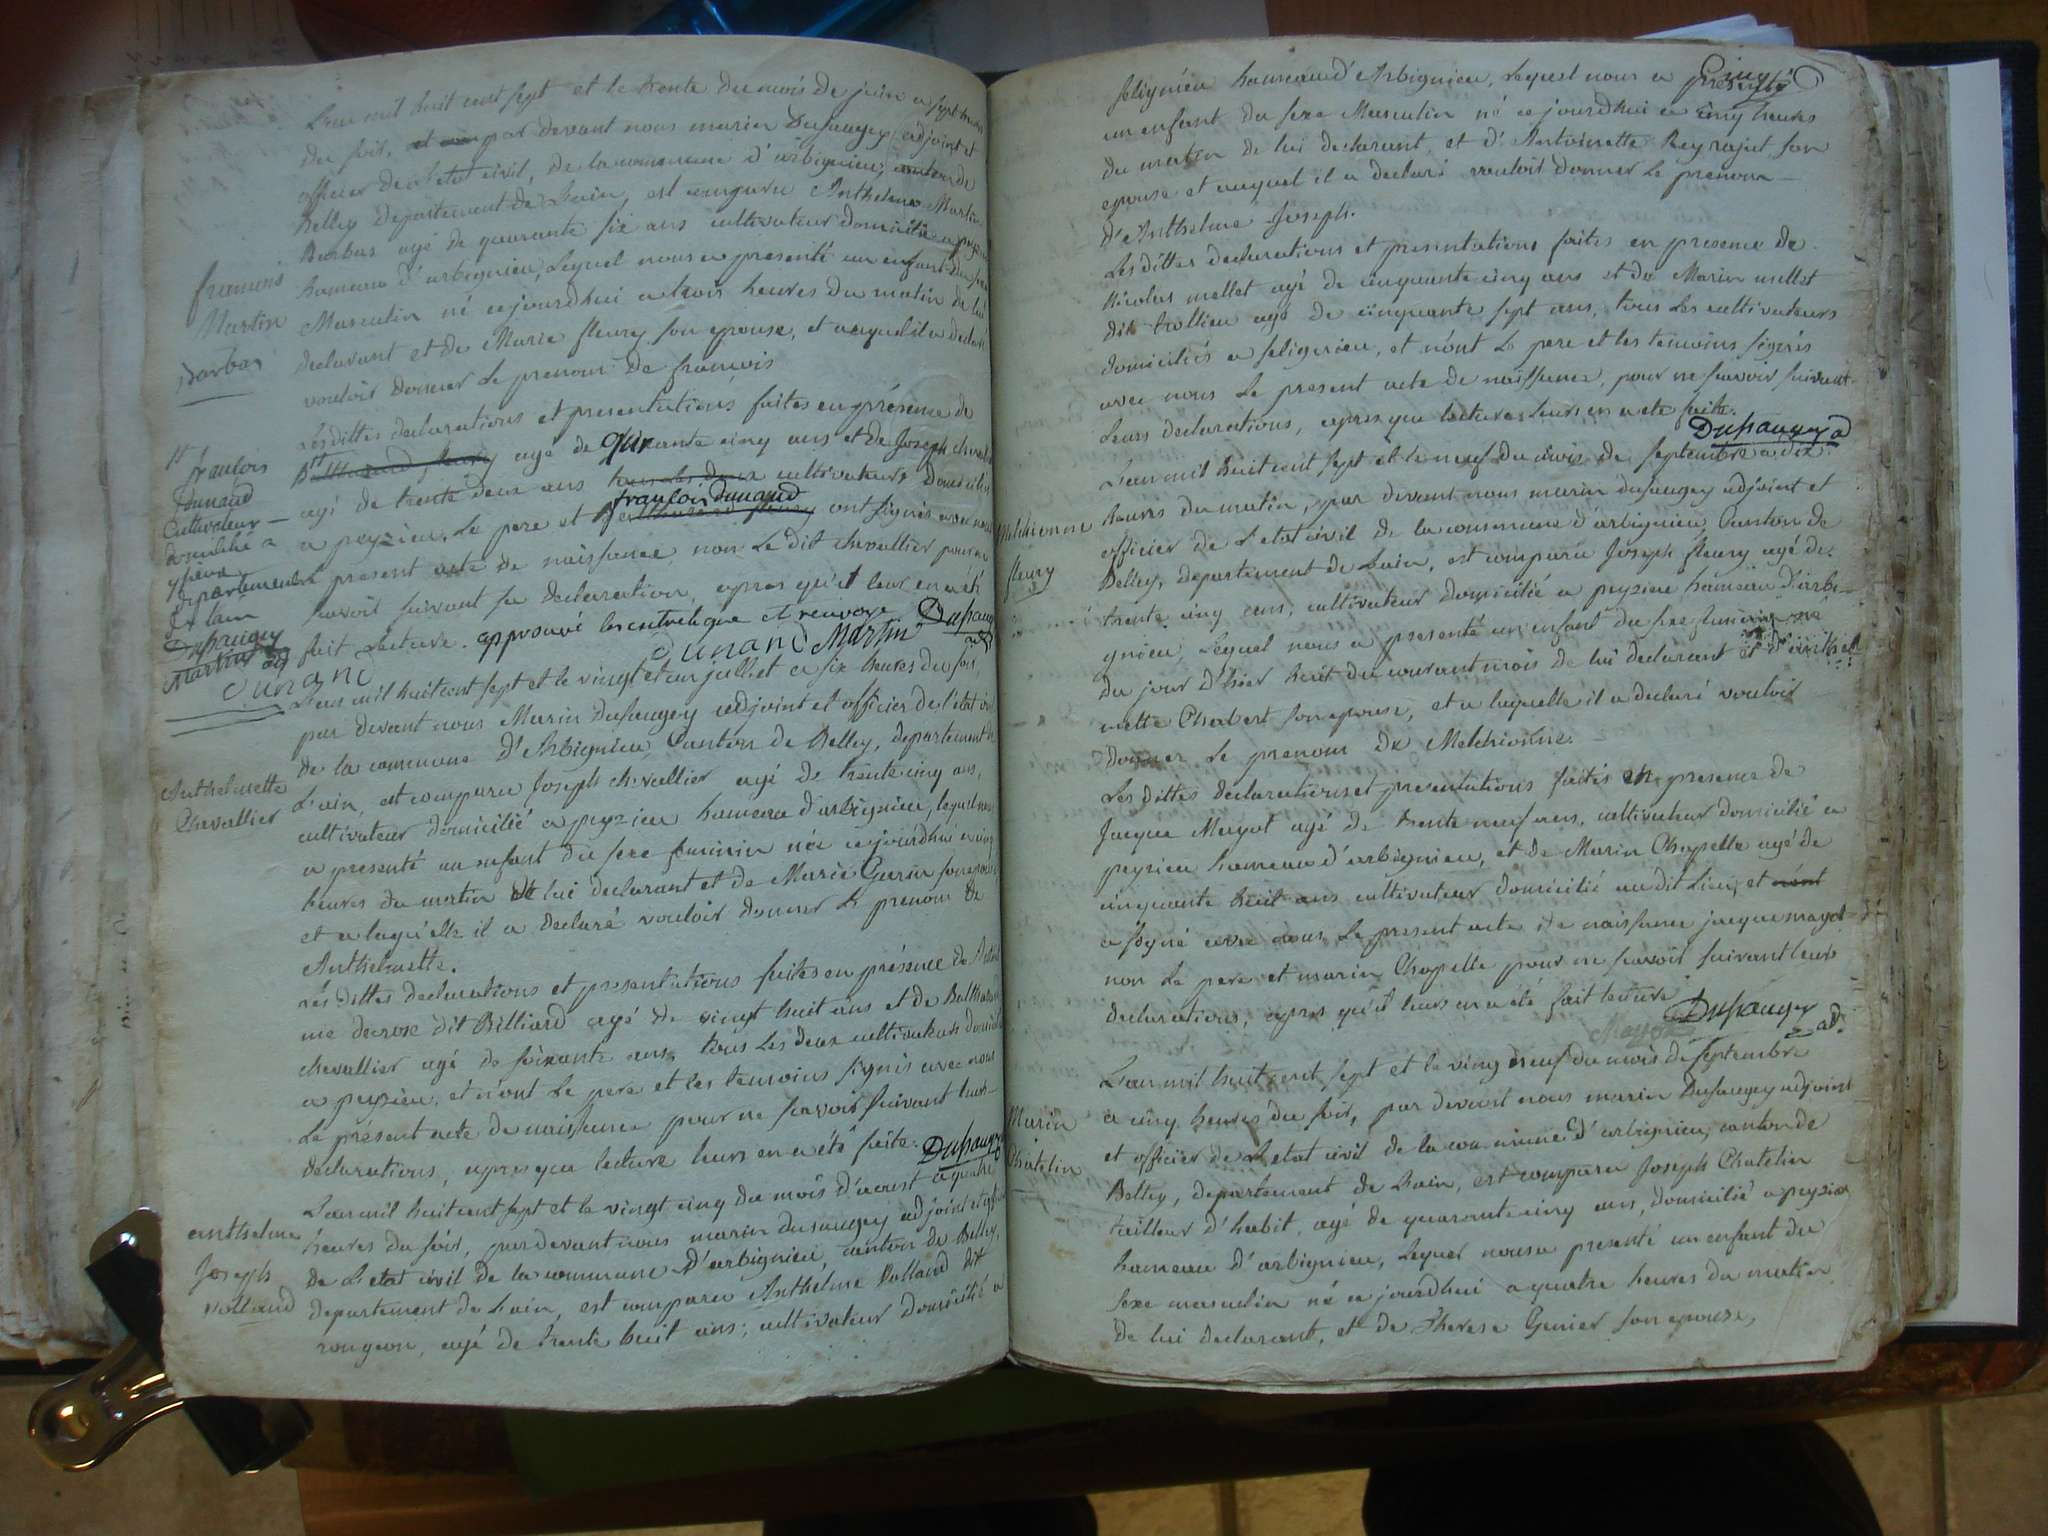 L'an mil huit cent sept et le trente du mois de juin a sept heures
du soir, par devant nous marin Dusaugey adjoint et
officier de l'etat civil, de la commune d'arbignieu, canton de
Belley departement de Lain, est comparu Anthelme Martin
Barbas agé de quarante six ans cultivateur domicilié a
hameau d'arbignieu, Lequel nous a presenté un enfant du sexe
Masculin né cejourdhui a trois heures du matin de lui
declarant et de Marie fleury son epouse, et auquel il a declaré
vouloir donner Le prenom de francois
françois
Martin
Barbas
Les dittes declarations et presentations faites en présence de
Balthazard fleury agé de cinq ans et de Joseph chevallier
agé de trente deux ans tous les deux cultivateurs domiciliés
a peyzieu, Le pere et françois Dunand ont signés avec nous
present acte de naissance non Le dit chevallier pour ne
savoir suivant sa declaration, apres qu'il leur en a été
fait Lecture. approuvé et renvoye Dusaugey
Dunand Martin adj
françois
Dunand
Cultivateur
domicilié a
departement
de lain
Dusaugey
Martin adj
Dunand
L'an mil huit cent sept et le vingt et un juillet a six heures du soir,
par devant nous Marin Dusaugey adjoint et officier de l'état civil
de la commune d'Arbignieu, Canton de Belley, departement de
L'ain, est comparu Joseph chevallier agé de trente cinq ans,
cultivateur domicilié a peyzieu hameau d'arbignieu, lequel nous
a presenté un enfant du sexe feminin née cejourdhui a cinq
heures du matin de lui declarant et de Marie Gurin son epouse,
et a laquelle il a declaré vouloir donner Le prenom de
Anthelmette.
Anthelmette
Chevallier
Les dittes declarations et presentations faites en présence de
decrose dit Billiard agé de vingt huit ans et de Balthazard
chevallier agé de soixante ans, tous Les deux cultivateurs domiciliés
a peyzieu, et n'ont Le pere et les temoins signés avec nous
Le présent acte de naissance pour ne savoir suivant leurs
declarations, apres que lecture leurs en a été faite. Dusaugey
L'an mil huit cent sept et le vingt cinq du mois d'aoust a quatre
heures du soir, par devant nous marin dusaugey adjoint et officier
de L'etat civil de la commune d'arbignieu, canton de Belley,
departement de Lain, est comparu Anthelme Volland dit
rongeon, agé de trente huit ans, cultivateur domicilié a
anthelme
Joseph
volland
selignieu hameau d'Arbignieu, Lequel nous a presenté
un enfant du sexe Masculin né cejourdhui a cinq heures
du matin de lui declarant, et d'Antoinette Reyrajut son
epouse et auquel il a declaré vouloir donner Le prenom
d'Anthelme Joseph.
Les dittes declarations et presentations faites en presence de
Nicolas mellet agé de cinquante cinq ans et de Marin mellet
dit trollieu agé de cinquante sept ans, tous Les cultivateurs
domiciliés a selignieu, et n'ont Le pere et les temoins signés
avec nous Le present acte de naissance, pour ne savoir suivant
Leurs declarations, apres que lecture leurs en a été faite.
Dusaugey ad
L'an mil huit cent sept et le neuf du mois de septembre a dix
heures du matin, par devant nous marin dusaugey adjoint et
officier de L'etat civil de la commune d'arbignieu, Canton de
Belley, departement de Lain, est comparu Joseph fleury agé de
trente cinq ans, cultivateur domicilié a peyzieu hameau d'arbi-
gnieu, Lequel nous a presenté un enfant du sexe feminin né
du jour d'hier huit du courant mois de lui declarant et d'anthel
mette Chabert son epouse, et a laquelle il a declaré vouloir
donner Le prenom de Melchionne.
Melchionne
fleury
Les dittes declarations et presentations faites en presence de
Jacque Mayot agé de trente neuf ans, cultivateur domicilié a
peyzieu hameau d'arbignieu, et de Marin Chapelle agé de
cinquante huit ans cultivateur domicilié au dit Lieu, et n'ont
a signé avec nous Le present acte de naissance jacque mayot
non Le pere et marin Chapelle pour ne savoir suivant leurs
declarations, apres qu'il leurs en a été fait lecture
Mayot Dusaugey ad.
L'an mil huit cent sept et le vingt neuf du mois de septembre
a cinq heures du soir, par devant nous marin Dusaugey adjoint
et officier de L'etat civil de la commune d'arbignieu, canton de
Belley, departement de Lain, est comparu Joseph Chatelin
tailleur d'habit, agé de quarante cinq ans, domicilié a peyzieu
hameau d'arbignieu, Lequel nous a presenté un enfant du
sexe masculin né ce jourdhui a quatre heures du matin
de lui declarant, et de Therese Genier son epouse,
Marin
Chatelin